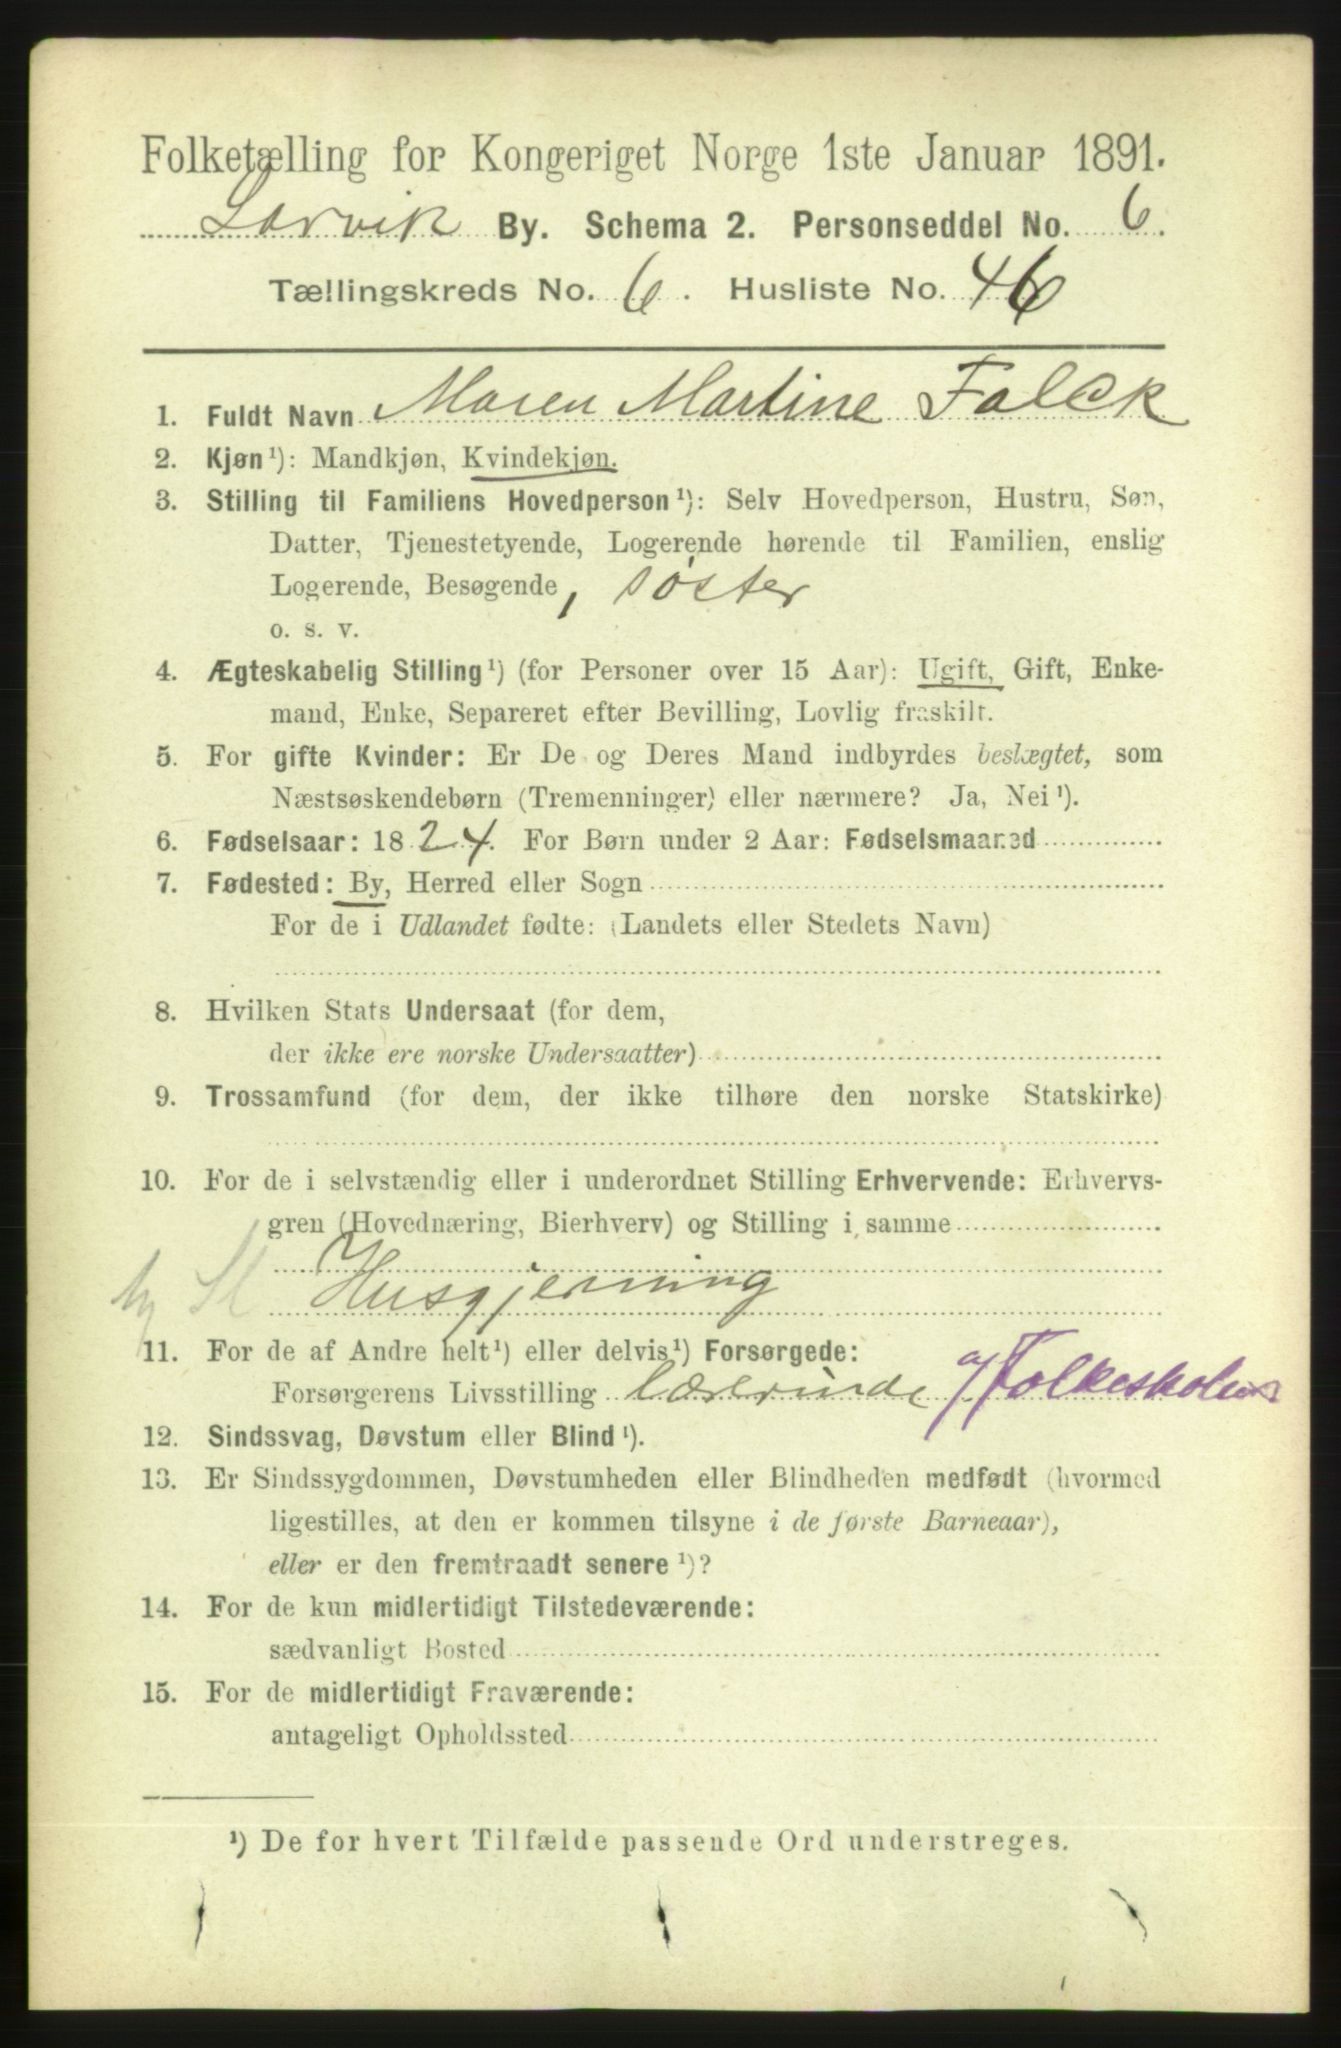 Folketælling for Kongeriget Norge 1ste Januar 1891.
Larvik By. Schema 2. Personseddel No. 6.
Tællingskreds No. 6. Husliste No. 46
1. Fuldt Navn Maren Martine Falck
2. Kjøn¹): Mandkjøn, Kvindekjøn.
3. Stilling til Familiens Hovedperson¹): Selv Hovedperson, Hustru, Søn,
Datter, Tjenestetyende, Logerende hørende til Familien, enslig
Logerende, Besøgende, søster
o. s. v.
4. Ægteskabelig Stilling¹) (for Personer over 15 Aar): Ugift, Gift, Enke-
mand, Enke, Separeret efter Bevilling, Lovlig fraskilt.
5. For gifte Kvinder: Er De og Deres Mand indbyrdes beslægtet, som
Næstsøskendebørn (Tremenninger) eller nærmere? Ja, Nei¹).
6. Fødselsaar: 1824. For Børn under 2 Aar: Fødselsmaaned
7. Fødested: By, Herred eller Sogn
For de i Udlandet fødte: (Landets eller Stedets Navn)
8. Hvilken Stats Undersaat (for dem,
der ikke ere norske Undersaatter)
9. Trossamfund (for dem, der ikke tilhøre den norske Statskirke)
10. For de i selvstændig eller i underordnet Stilling Erhvervende: Erhvervs-
gren (Hovednæring, Bierhverv) og Stilling i samme
Husgjerning
11. For de af Andre helt¹) eller delvis¹) Forsørgede:
Forsørgerens Livsstilling Lærerinde v/Folkeskolen
12. Sindssvag, Døvstum eller Blind¹).
13. Er Sindssygdommen, Døvstumheden eller Blindheden medfødt (hvormed
ligestilles, at den er kommen tilsyne i de første Barneaar),
eller er den fremtraadt senere¹)?
14. For de kun midlertidigt Tilstedeværende:
sædvanligt Bosted
15. For de midlertidigt Fraværende:
antageligt Opholdssted
¹) De for hvert Tilfælde passende Ord understreges.